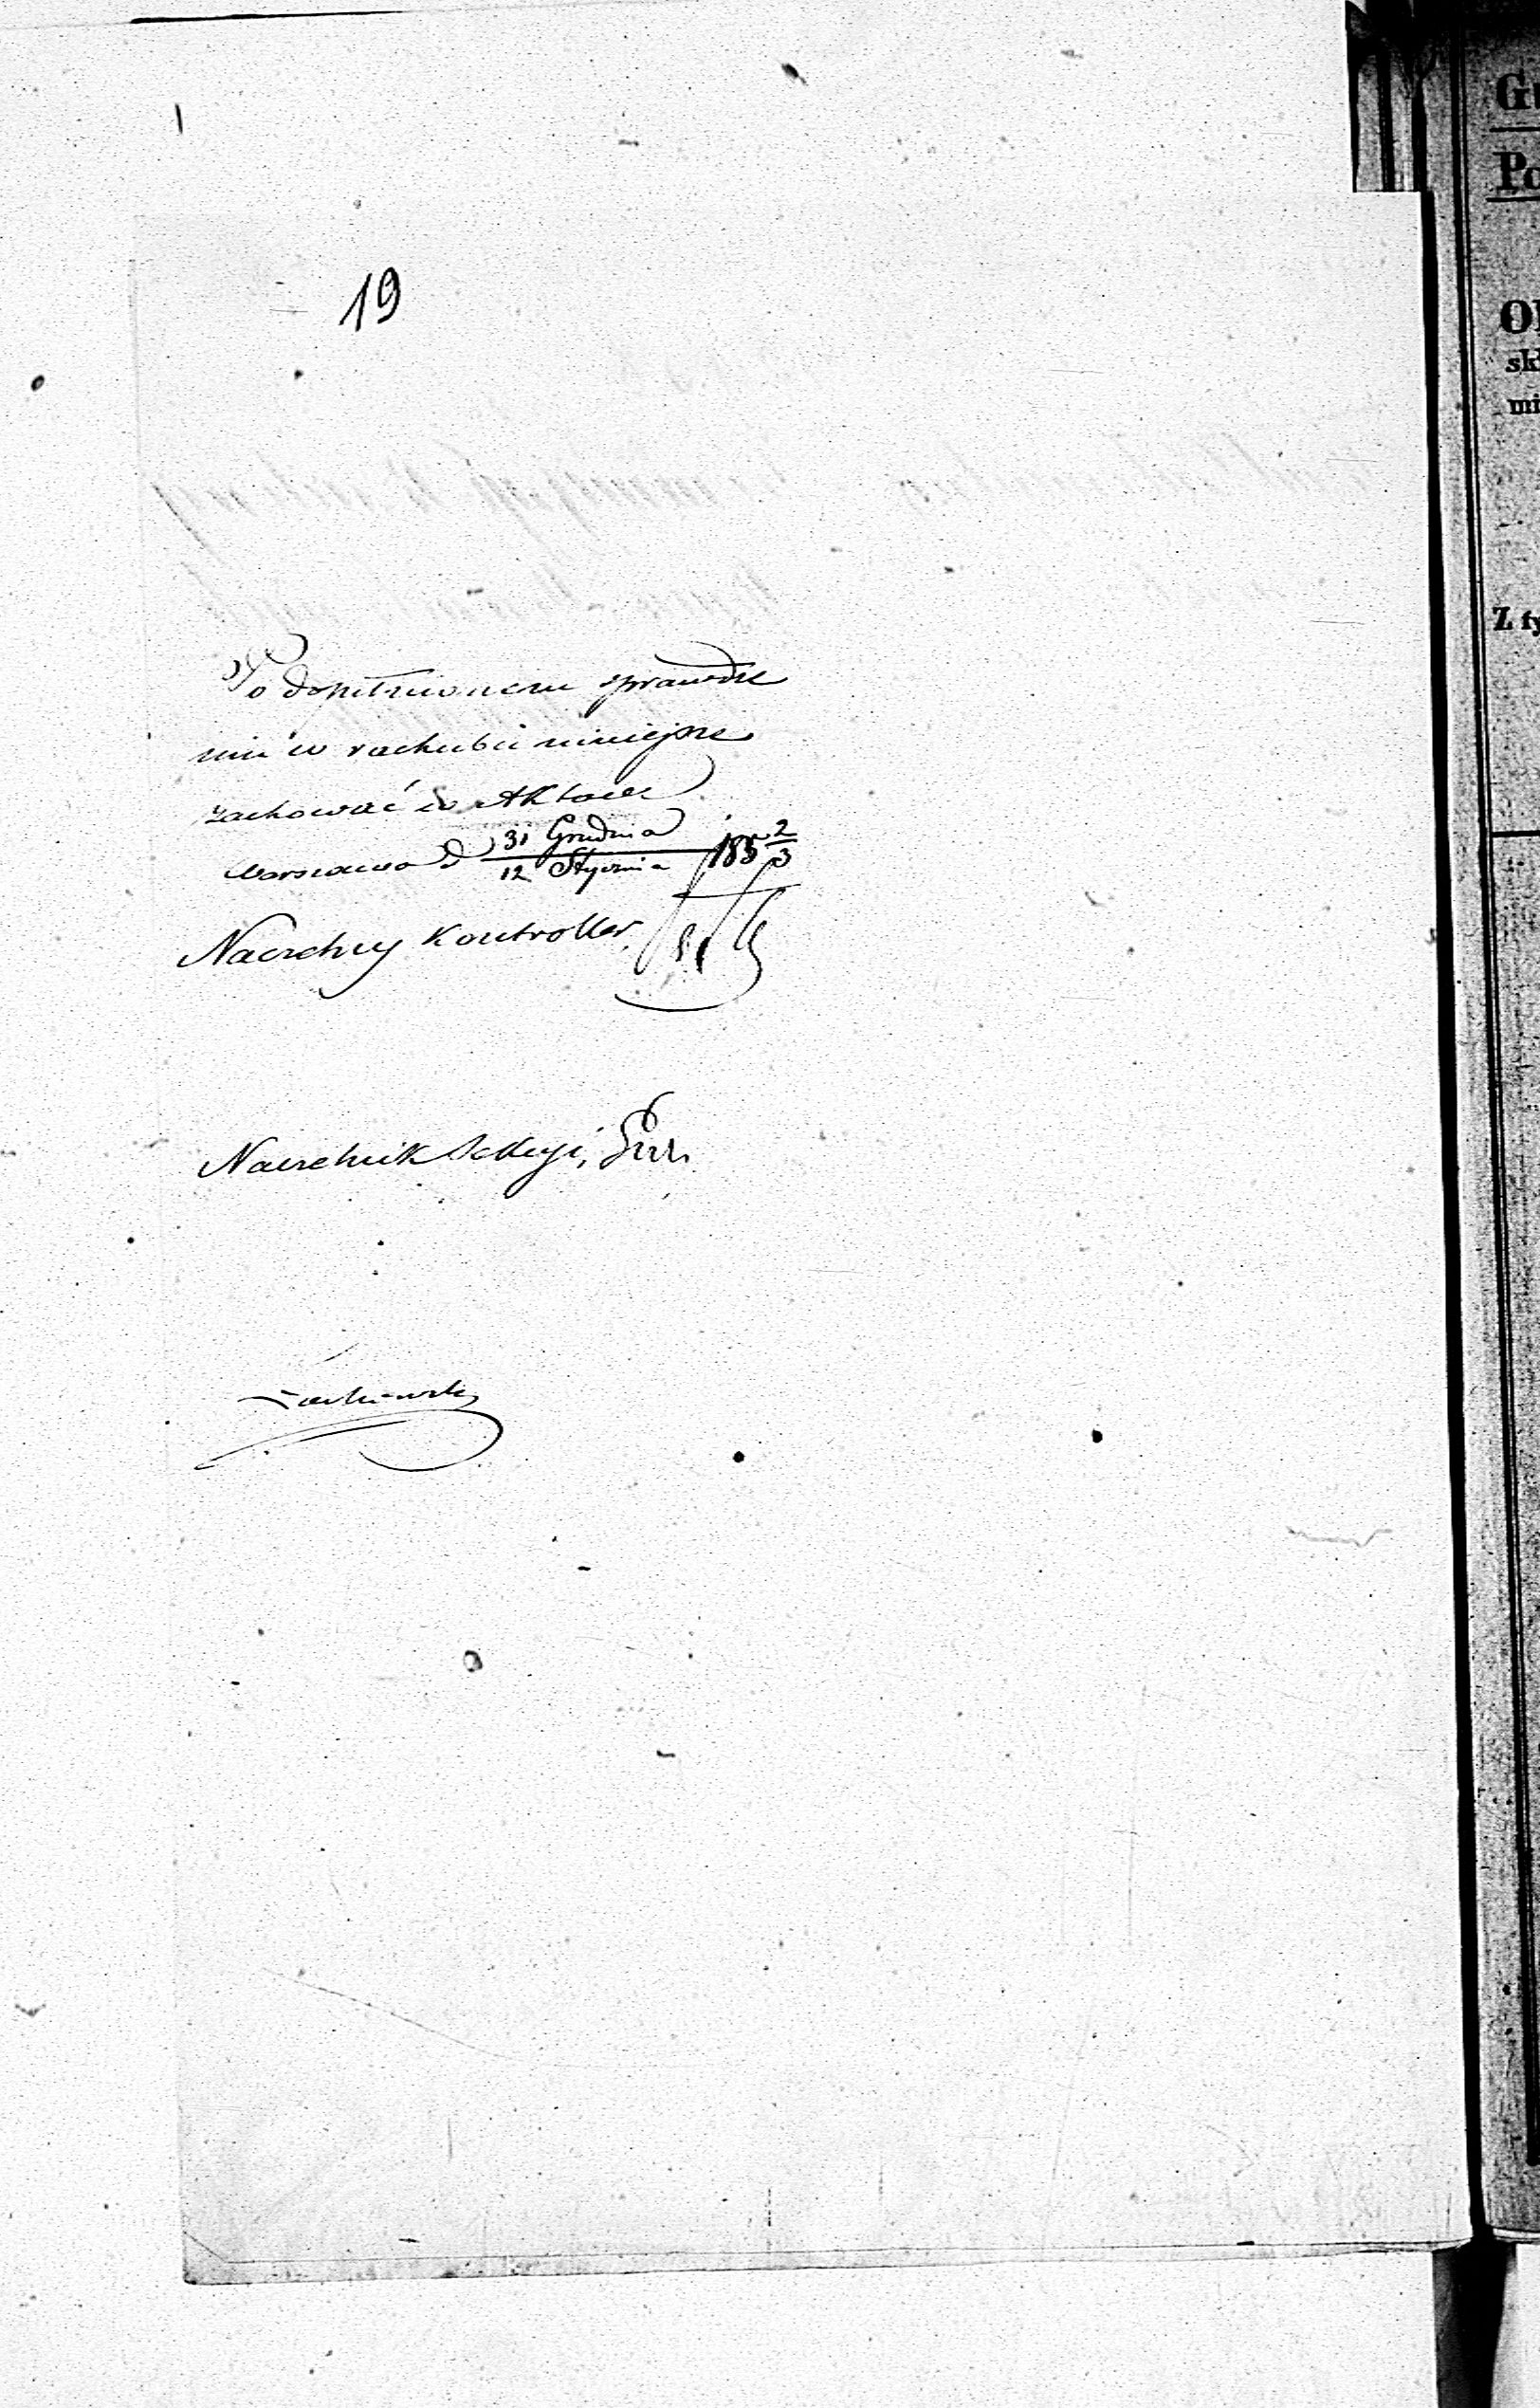 19
Po dopełnionem sprawdze
niu w rachubie niniejsze
zachować w Aktach
Warszawa d 31 Grudnia / 12 Stycznia 185 2/3
Naczelny Kontroller
Naczelnik Sekcyi,
G
Po
sk
mi